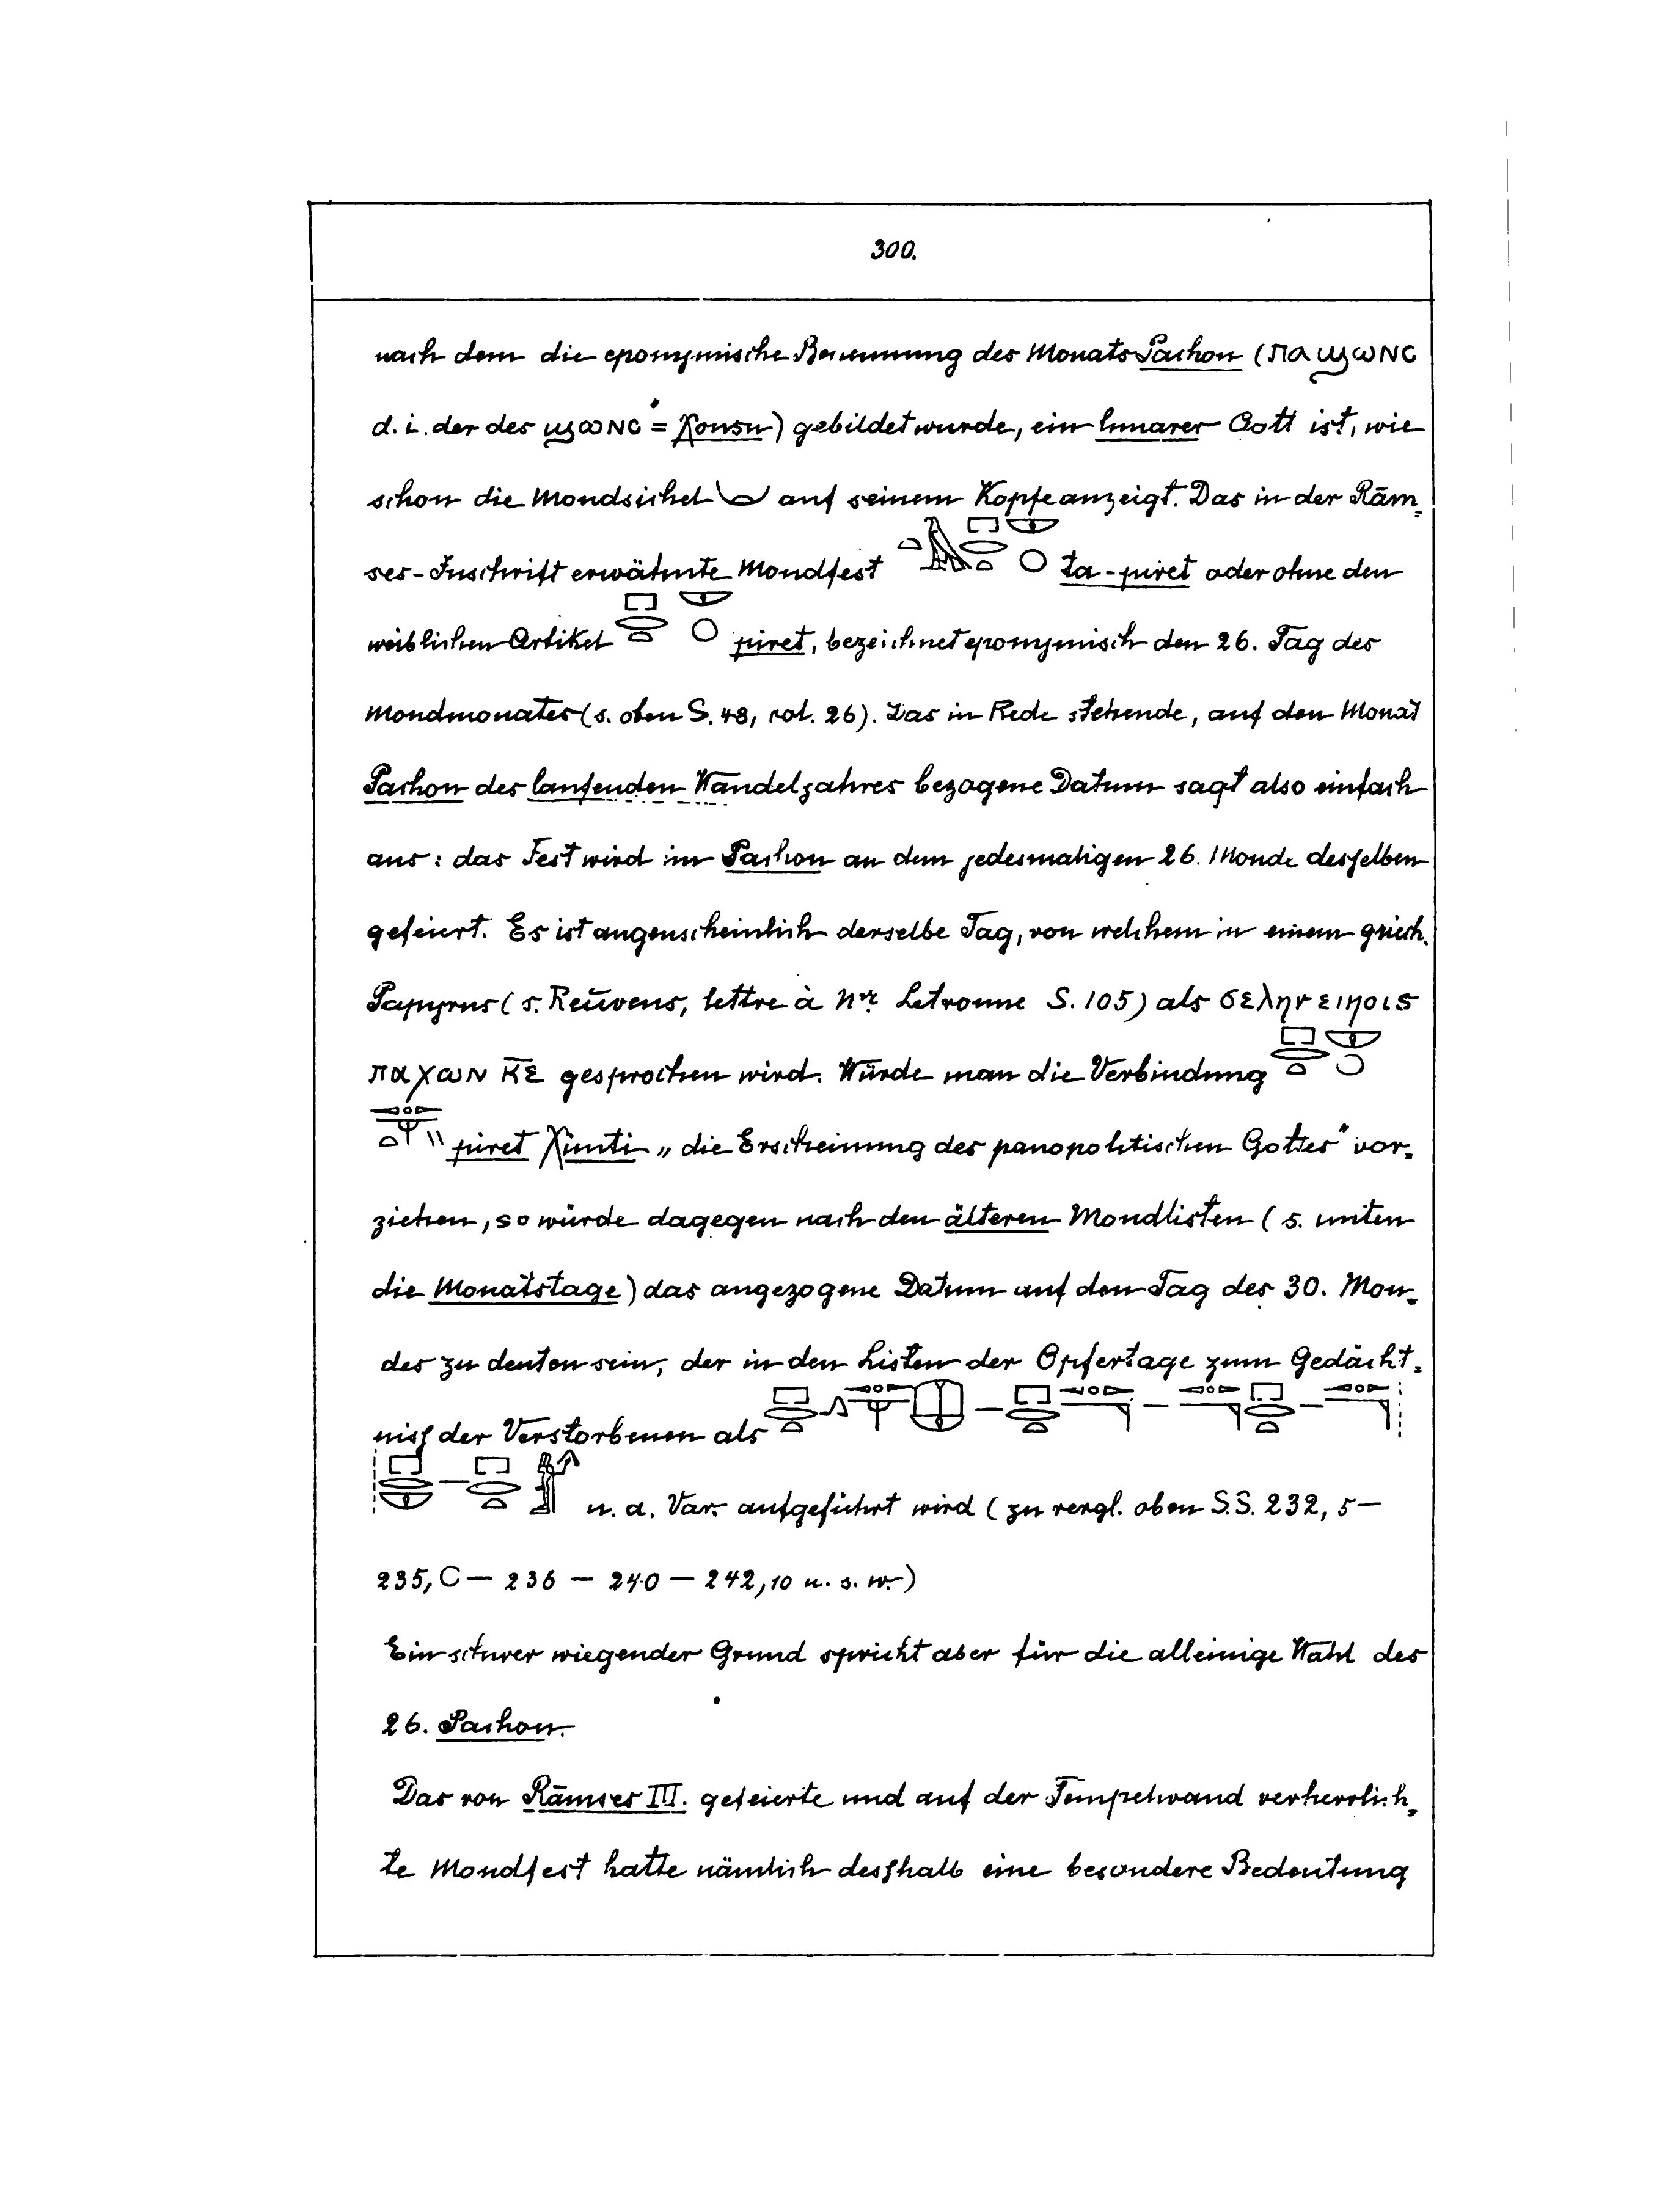 300.
nach dem die eponymische Benennung des Monats Pachon (ⲡⲁϣⲱⲛⲥ
d. i. der des ϣⲱⲛⲥ = Χonsu) gebildet wurde, ein lunarer Gott ist, wie
schon die Mondsichel auf seinem Kopfe anzeigt. Das in der Rām-
ses-Inschrift erwähnte Mondfest ta-piret oder ohne den
weiblichen Artikel piret, bezeichnet eponymisch den 26. Tag des
Mondmonates (s. oben S. 48, col. 26). Das in Rede stehende, auf den Monat
Pachon des laufenden Wandeljahres bezogene Datum sagt also einfach
aus: das Fest wird im Pachon an dem jedesmaligen 26. Monde desselben
gefeiert. Es ist augenscheinlich derselbe Tag, von welchem in einem griech.
Papyrus (s. Reŭvens, lettre à Mr. Letronne S. 105) als
παχων κ̅ε̅ gesprochen wird. Würde man die Verbindung
piret Χimti „die Erscheinung des panopolitischen Gottes" vor-
ziehen, so würde dagegen nach den älteren Mondlisten (s. unten
die Monatstage) das angezogene Datum auf den Tag des 30. Mon-
des zu deuten sein, der in den Listen der Opfertage zum Gedächt-
niß der Verstorbenen als
u. a. Var. aufgeführt wird (zu vergl. oben S.S. 232, 5 —
235, C — 236 — 240 — 242, 10 u. s. w.)
Ein schwer wiegender Grund spricht aber für die alleinige Wahl des
26. Pachon.
Das von Rāmses III. gefeierte und auf der Tempelwand verherrlich-
te Mondfest hatte nämlich deßhalb eine besondere Bedeutung